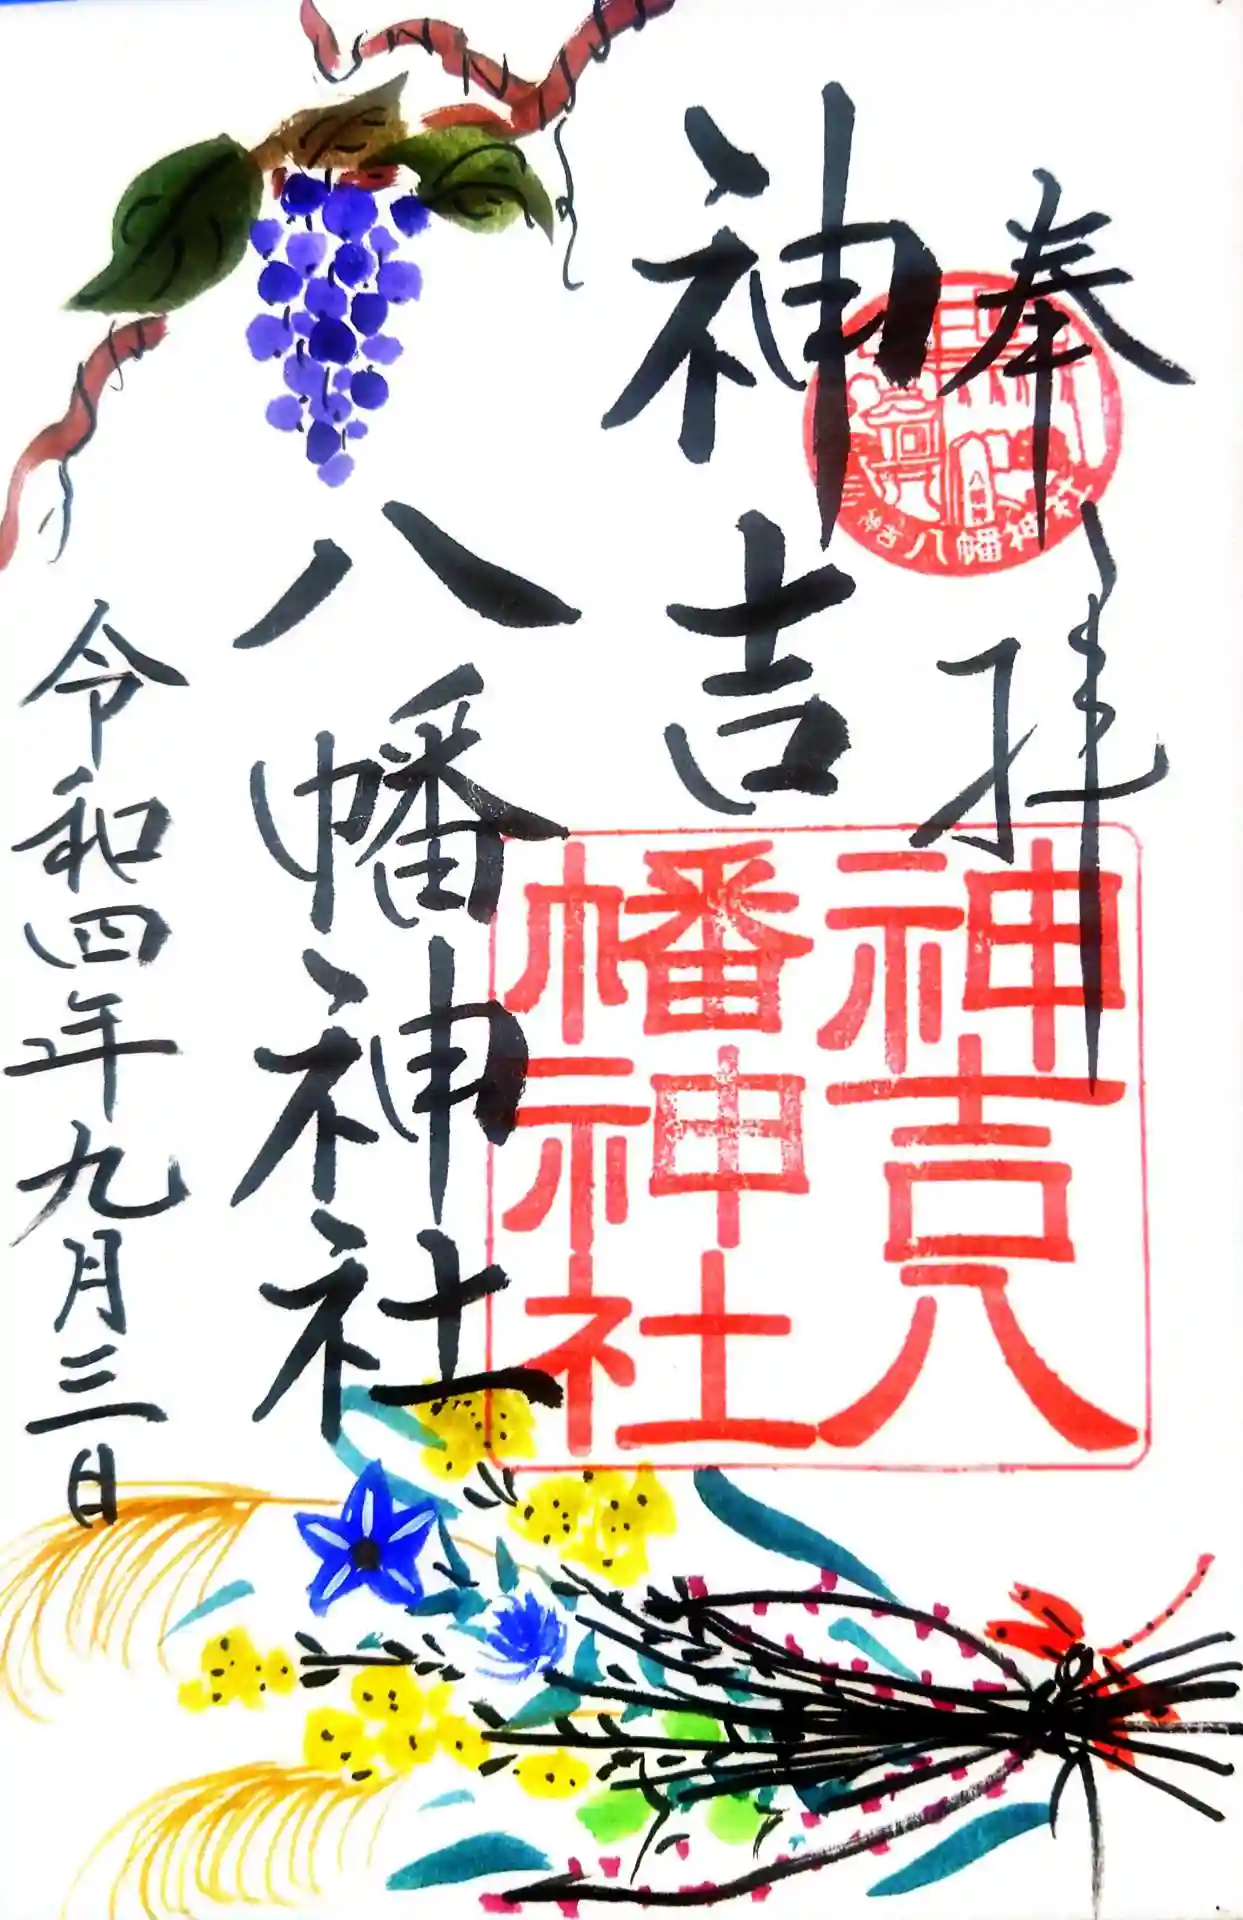 奉拝
神吉
八幡神社
令和四年九月三日
神吉八幡神社
神吉八
幡神社